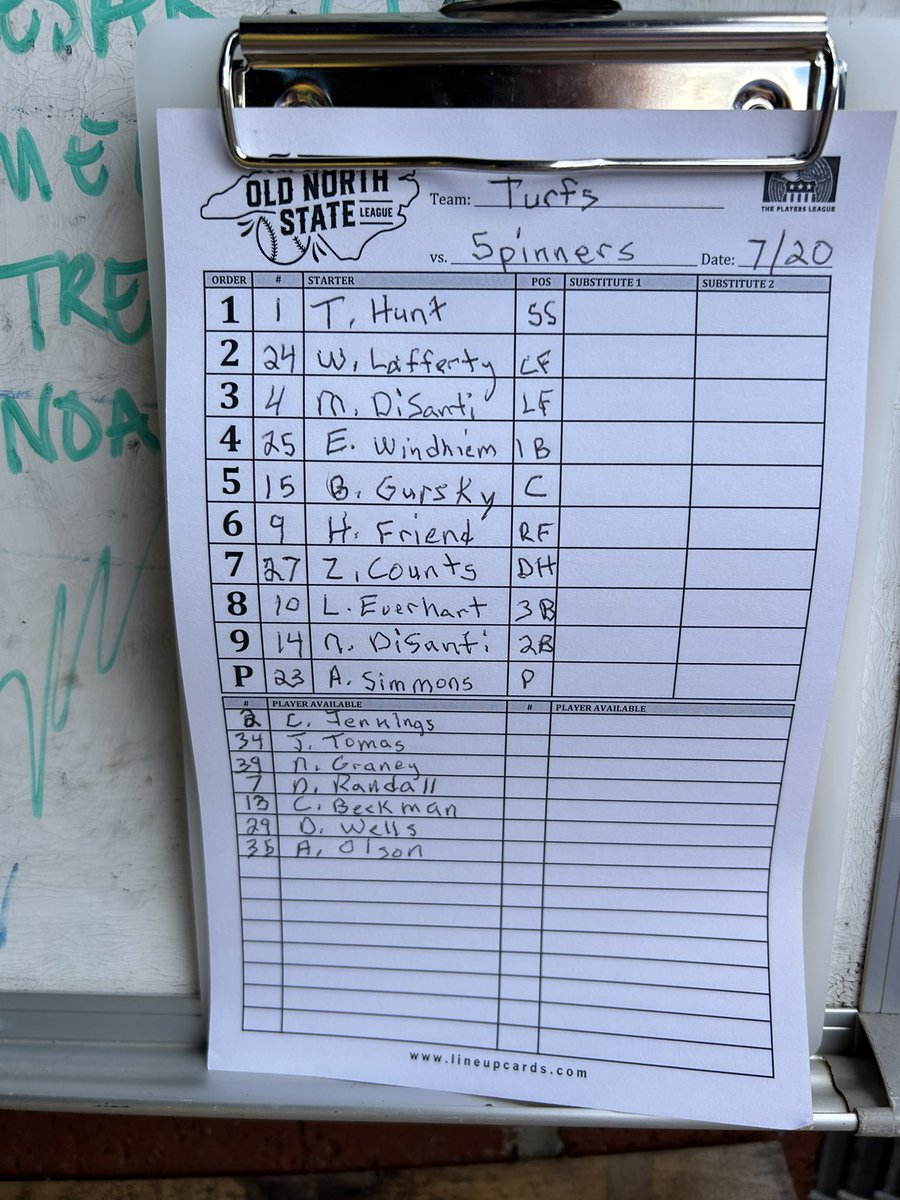 MÉ
TRE
NOA
OLD NORTH
STATE
LEAGUE
Team: Turfs
THE PLAYERS LEAGUE
vs. Spinners Date: 7/20
ORDER # STARTER POS SUBSTITUTE 1 SUBSTITUTE 2
1 1 T. Hunt SS
2 24 W. Lafferty CF
3 4 M. DiSanti LF
4 25 E. Windhiem 1B
5 15 B. Gursky C
6 9 H. Friend RF
7 27 Z. Counts DH
8 10 L. Everhart 3B
9 14 N. DiSanti 2B
P 23 A. Simmons P
# PLAYER AVAILABLE # PLAYER AVAILABLE
2 C. Jennings
34 J. Tomas
39 N. Graney
7 D. Randall
13 C. Beckman
29 D. Wells
35 A. Olson
www.lineupcards.com